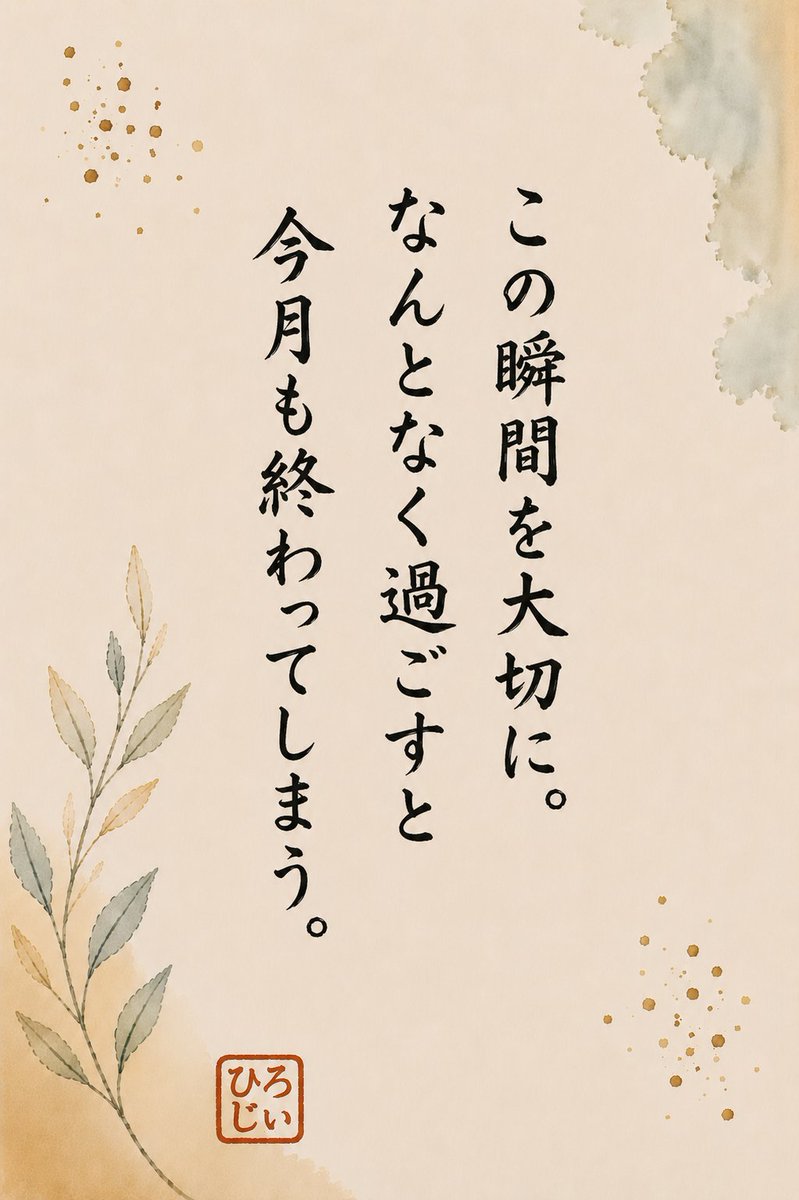 この瞬間を大切に。
なんとなく過ごすと
今月も終わってしまう。
ろい
ひじ